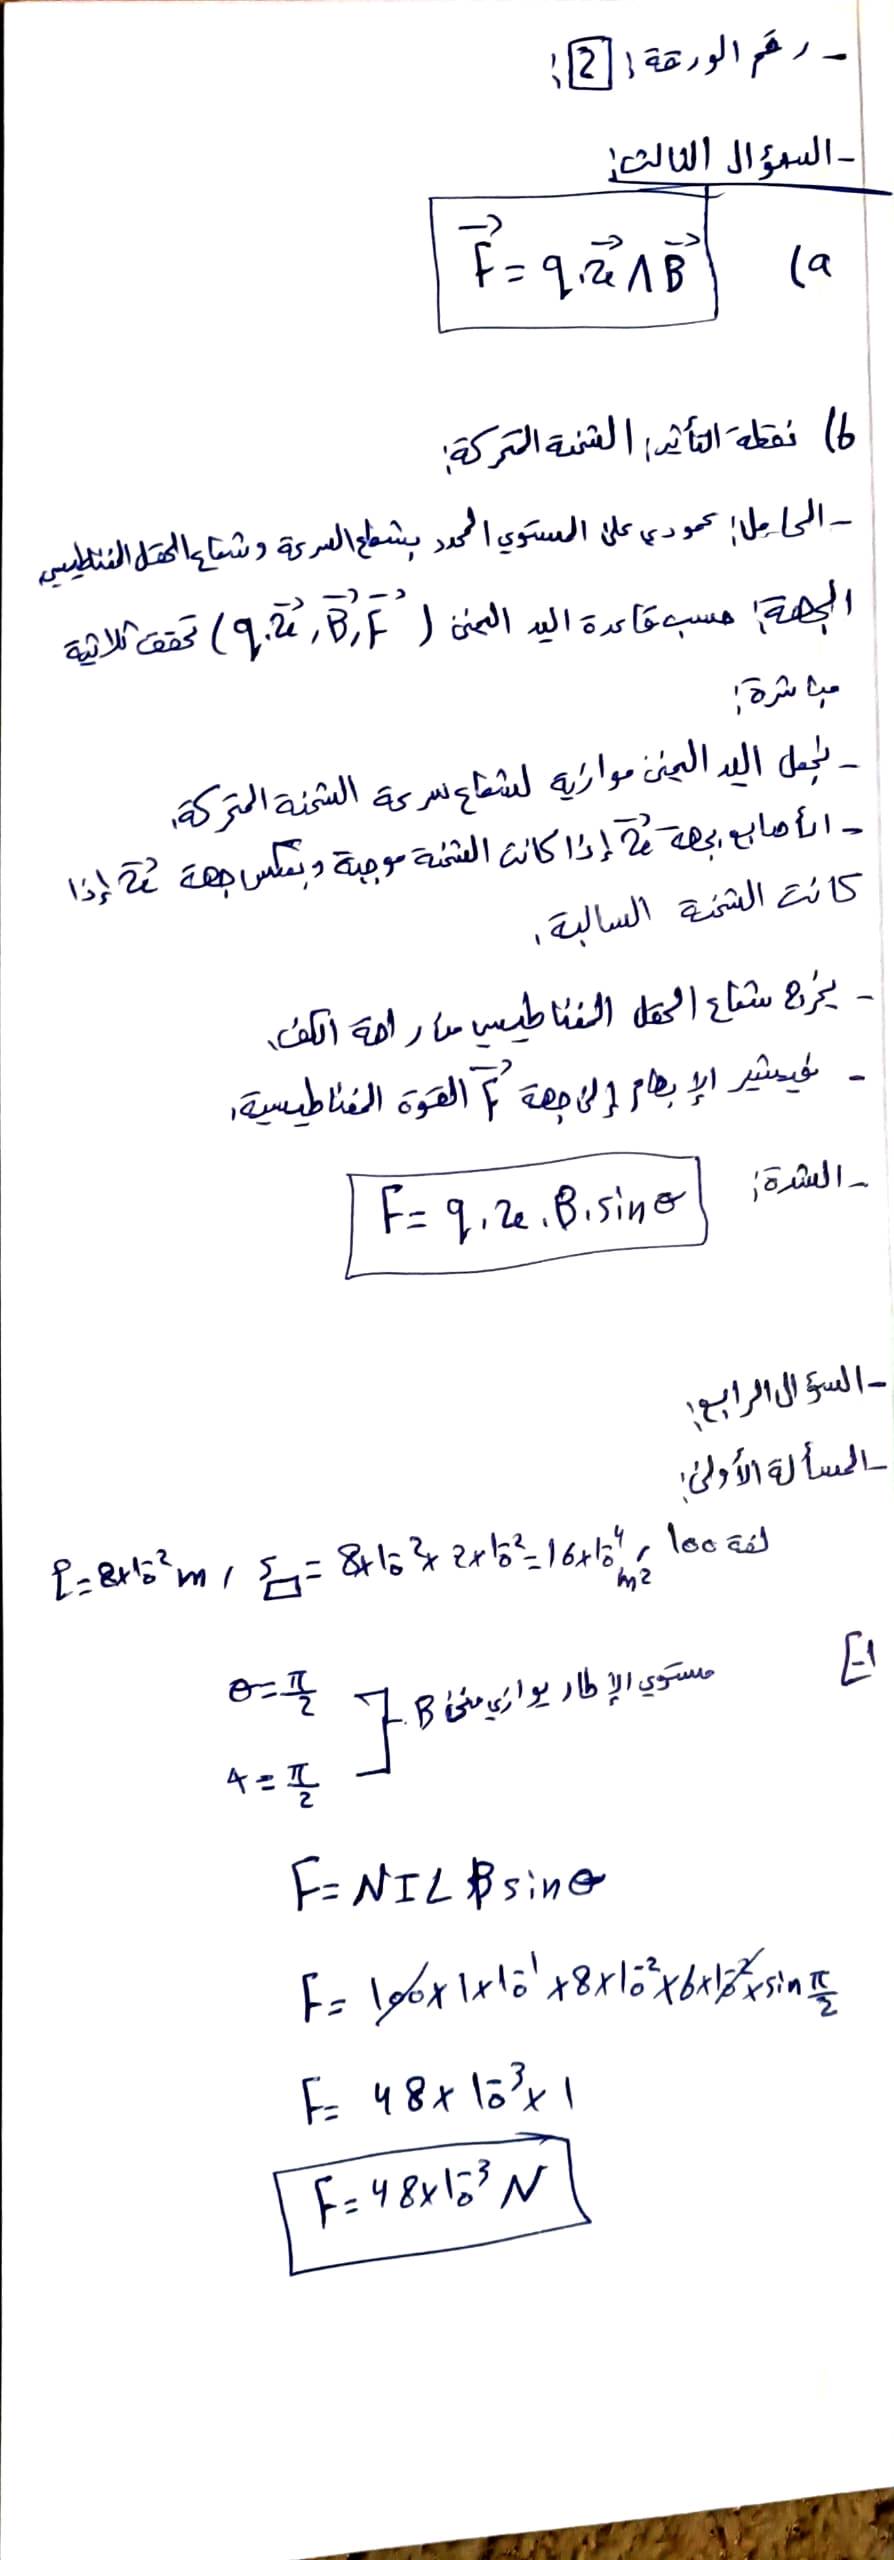 - رقم الورقة: 2:
- السؤال الثالث:
a) F⃗ = q.v⃗ ∧ B⃗
b) نقطة التأثير: الشحنة المتحركة:
- الحامل: عمودي على المستوي المحدد بشعاع السرعة وشعاع الحقل المغناطيسي
الجهة: حسب قاعدة اليد اليمنى (q.v⃗, B⃗, F⃗) تحقق ثلاثية
مباشرة:
- نجعل اليد اليمنى موازية لشعاع سرعة الشحنة المتحركة.
- الأصابع بجهة v⃗ إذا كانت الشحنة موجبة وبعكس جهة v⃗ إذا
كانت الشحنة السالبة.
- يخرج شعاع الحقل المغناطيسي من راحة الكف.
- فيشير الإبهام إلى جهة F⃗ القوة المغناطيسية.
- الشدة: F = q.v.B.sin θ
- السؤال الرابع:
- المسألة الأولى:
لفة 100, S▭ = 8×10⁻² × 2×10⁻² = 16×10⁻⁴ m², L = 8×10⁻² m
1- مستوي الإطار يوازي منحى B
θ = π/2
α = π/2
F = NILB sin θ
F = 100 × 1 × 10⁻¹ × 8 × 10⁻² × 6 × 10⁻² × sin π/2
F = 48 × 10⁻³ × 1
F = 48 × 10⁻³ N